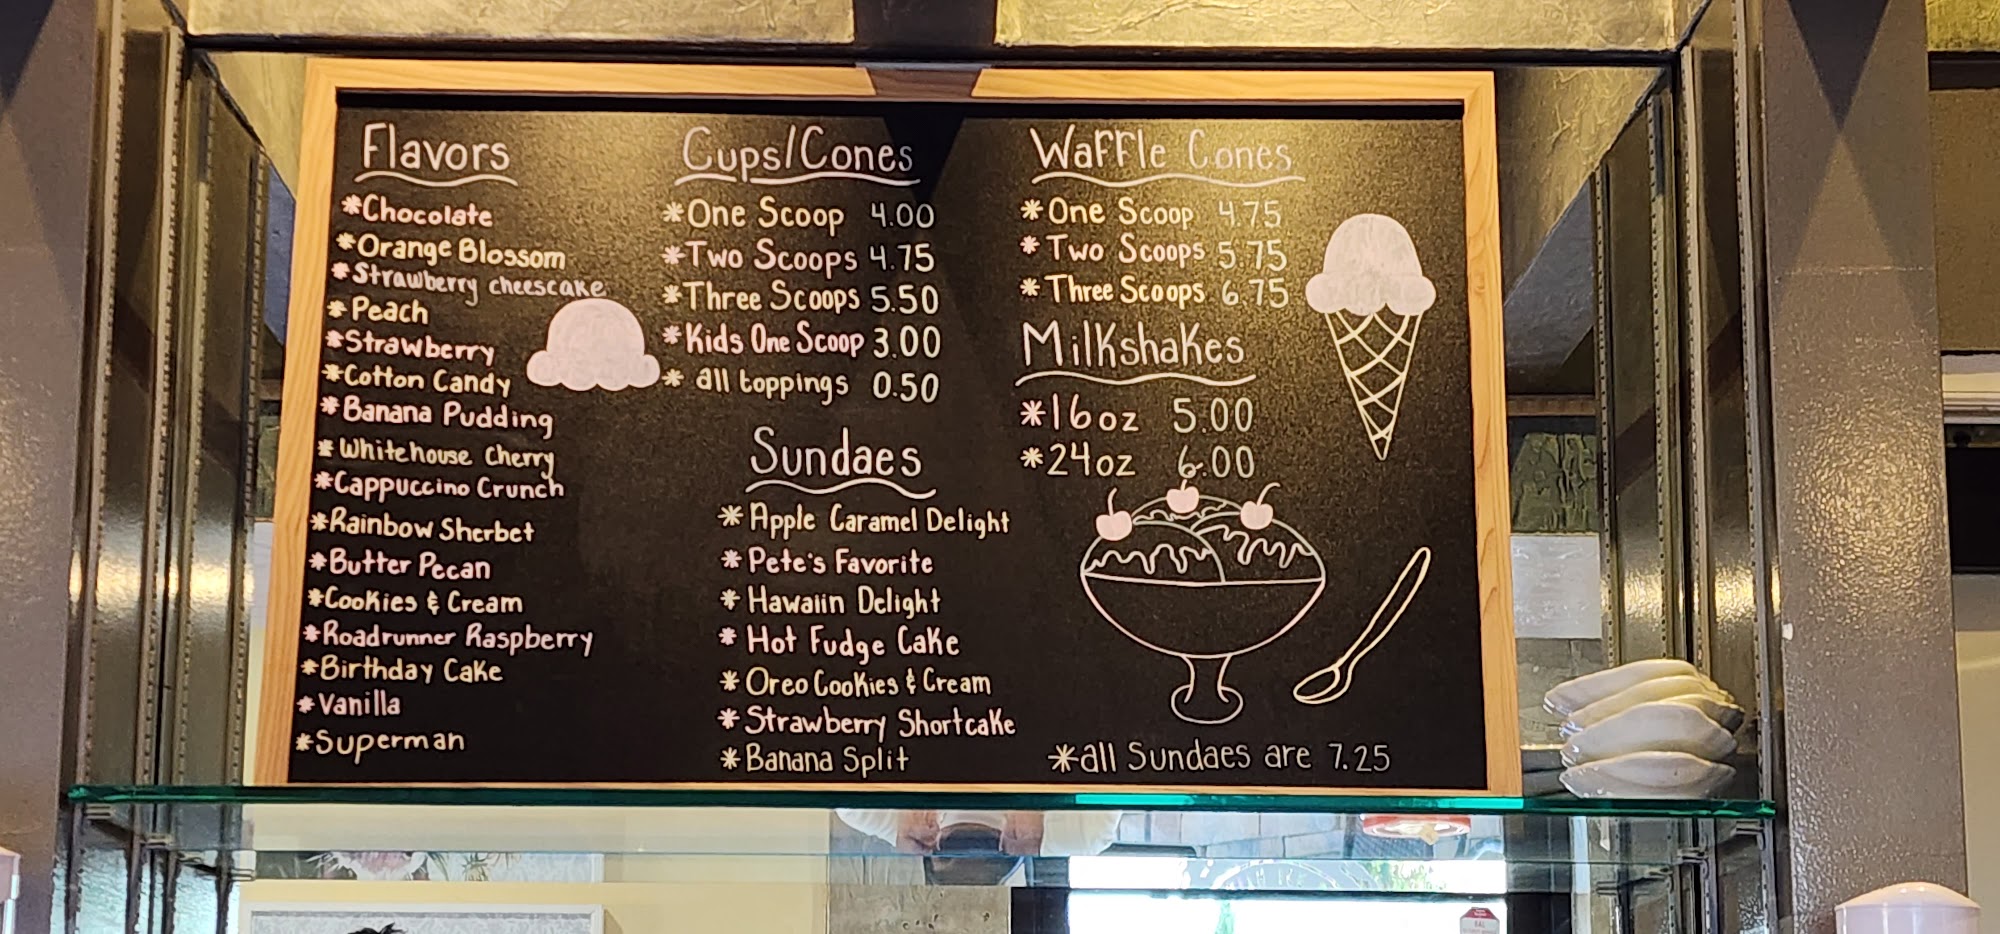 Flavors
*Chocolate
*Orange Blossom
*Strawberry cheescake
*Peach
*Strawberry
*Cotton Candy
*Banana Pudding
*Whitehouse Cherry
*Cappuccino Crunch
*Rainbow Sherbet
*Butter Pecan
*Cookies & Cream
*Roadrunner Raspberry
*Birthday Cake
*Vanilla
*Superman
Cups/Cones
*One Scoop 4.00
*Two Scoops 4.75
*Three Scoops 5.50
*Kids One Scoop 3.00
* all toppings 0.50
Sundaes
* Apple Caramel Delight
* Pete's Favorite
* Hawaiin Delight
* Hot Fudge Cake
* Oreo Cookies & Cream
* Strawberry Shortcake
* Banana Split
Waffle Cones
* One Scoop 4.75
* Two Scoops 5.75
* Three Scoops 6.75
Milkshakes
*16oz 5.00
*24oz 6.00
*all Sundaes are 7.25